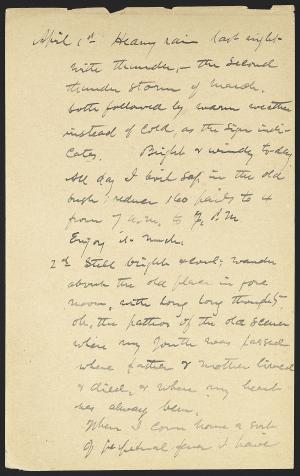 April 1st Heavy rain last night
with thunder, – the second
thunder storm of March.
both followed by warm weather
instead of cold, as the sign indi-
cates. Bright & windy to-day.
All day I boil sap in the old
bush; reduce 160 pails to 4
from 7 A.M. to P.M.
Enjoy it much.
2nd Still bright & cool; wander
about the old place in fore
noon, with long long thoughts,
oh, the pathos of the old scenes
where my youth was passed
where father & mother lived
& died, & where my heart
has always been.
When I come home a sort
of perpetual fever I have